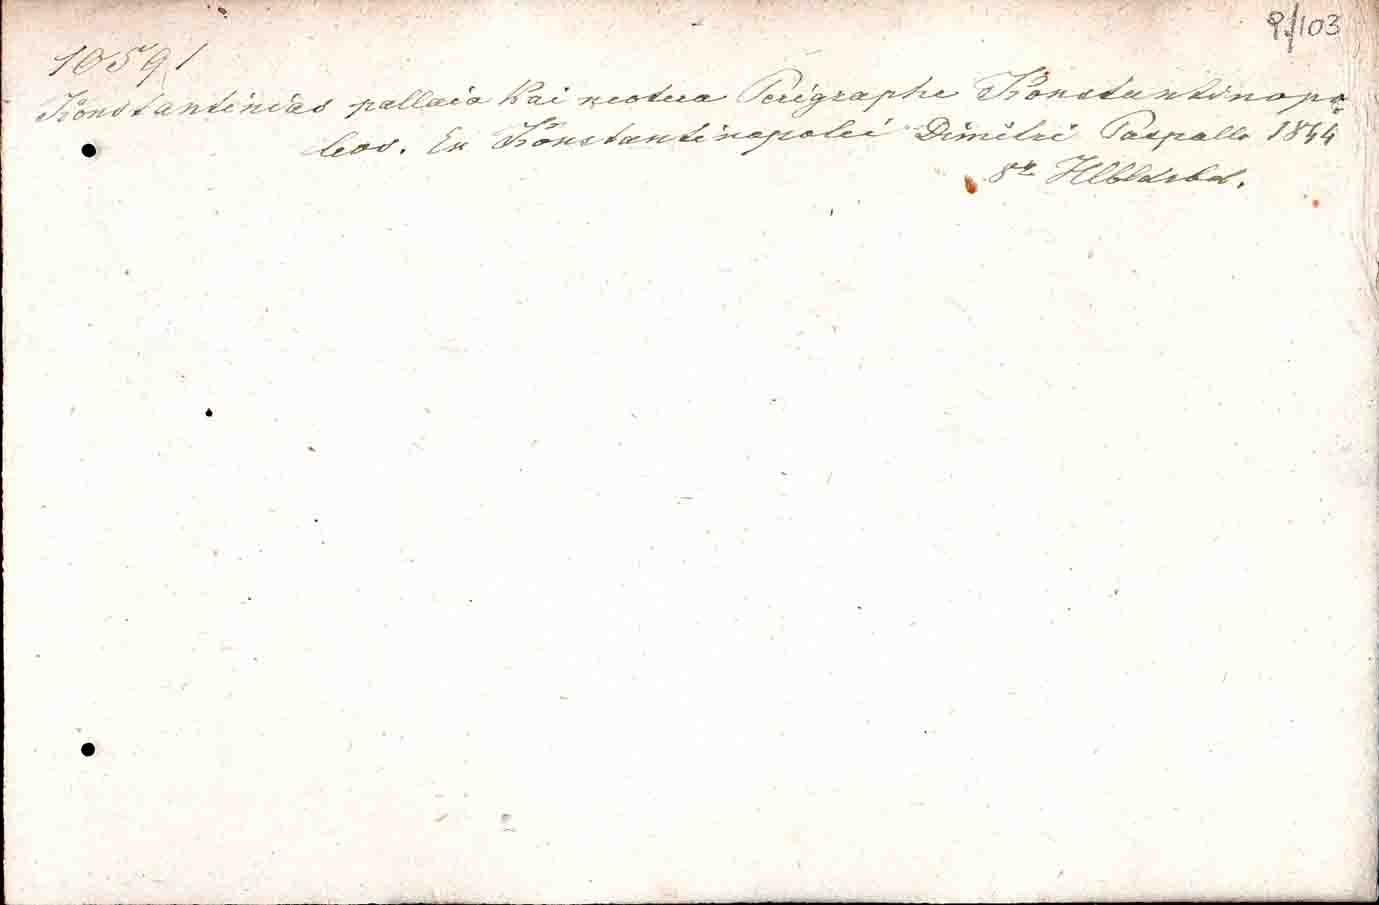 9/103
10591
Konstantinias pallaia kai neotera Perigraphe Konstantinopo-
leos. En Konstantinopolei Dimitri Paspallo 1844
8° Hlbldrbd.